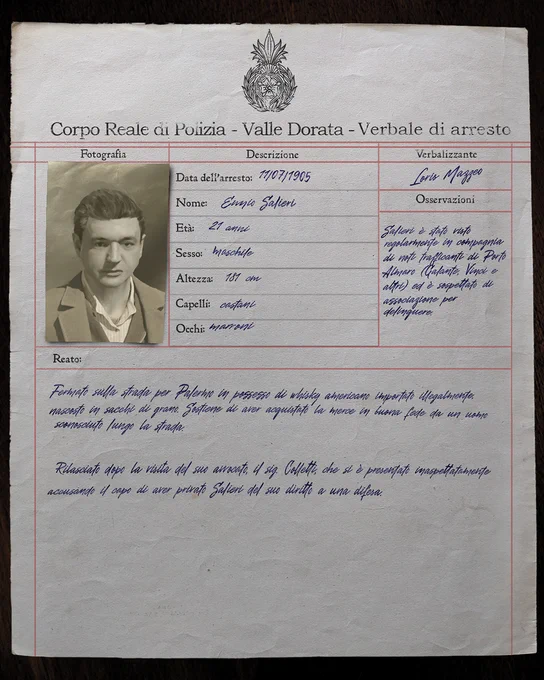 Corpo Reale di Polizia - Valle Dorata - Verbale di arresto
Fotografia
Descrizione
Verbalizzante
Data dell'arresto: 17/07/1905
Nome: Ennio Salieri
Età: 21 anni
Sesso: maschile
Altezza: 181 cm
Capelli: castani
Occhi: marroni
Loris Mazzeo
Osservazioni
Salieri è stato visto
regolarmente in compagnia
di noti trafficanti di Porto
Almaro (Galante, Vinci e
altri) ed è sospettato di
associazione per
delinquere.
Reato:
Fermato sulla strada per Palermo in possesso di whisky americano importato illegalmente,
nascosto in sacchi di grano. Sostiene di aver acquistato la merce in buona fede da un uomo
sconosciuto lungo la strada.
Rilasciato dopo la visita del suo avvocato, il sig. Colletti, che si è presentato inaspettatamente
accusando il capo di aver privato Salieri del suo diritto a una difesa.